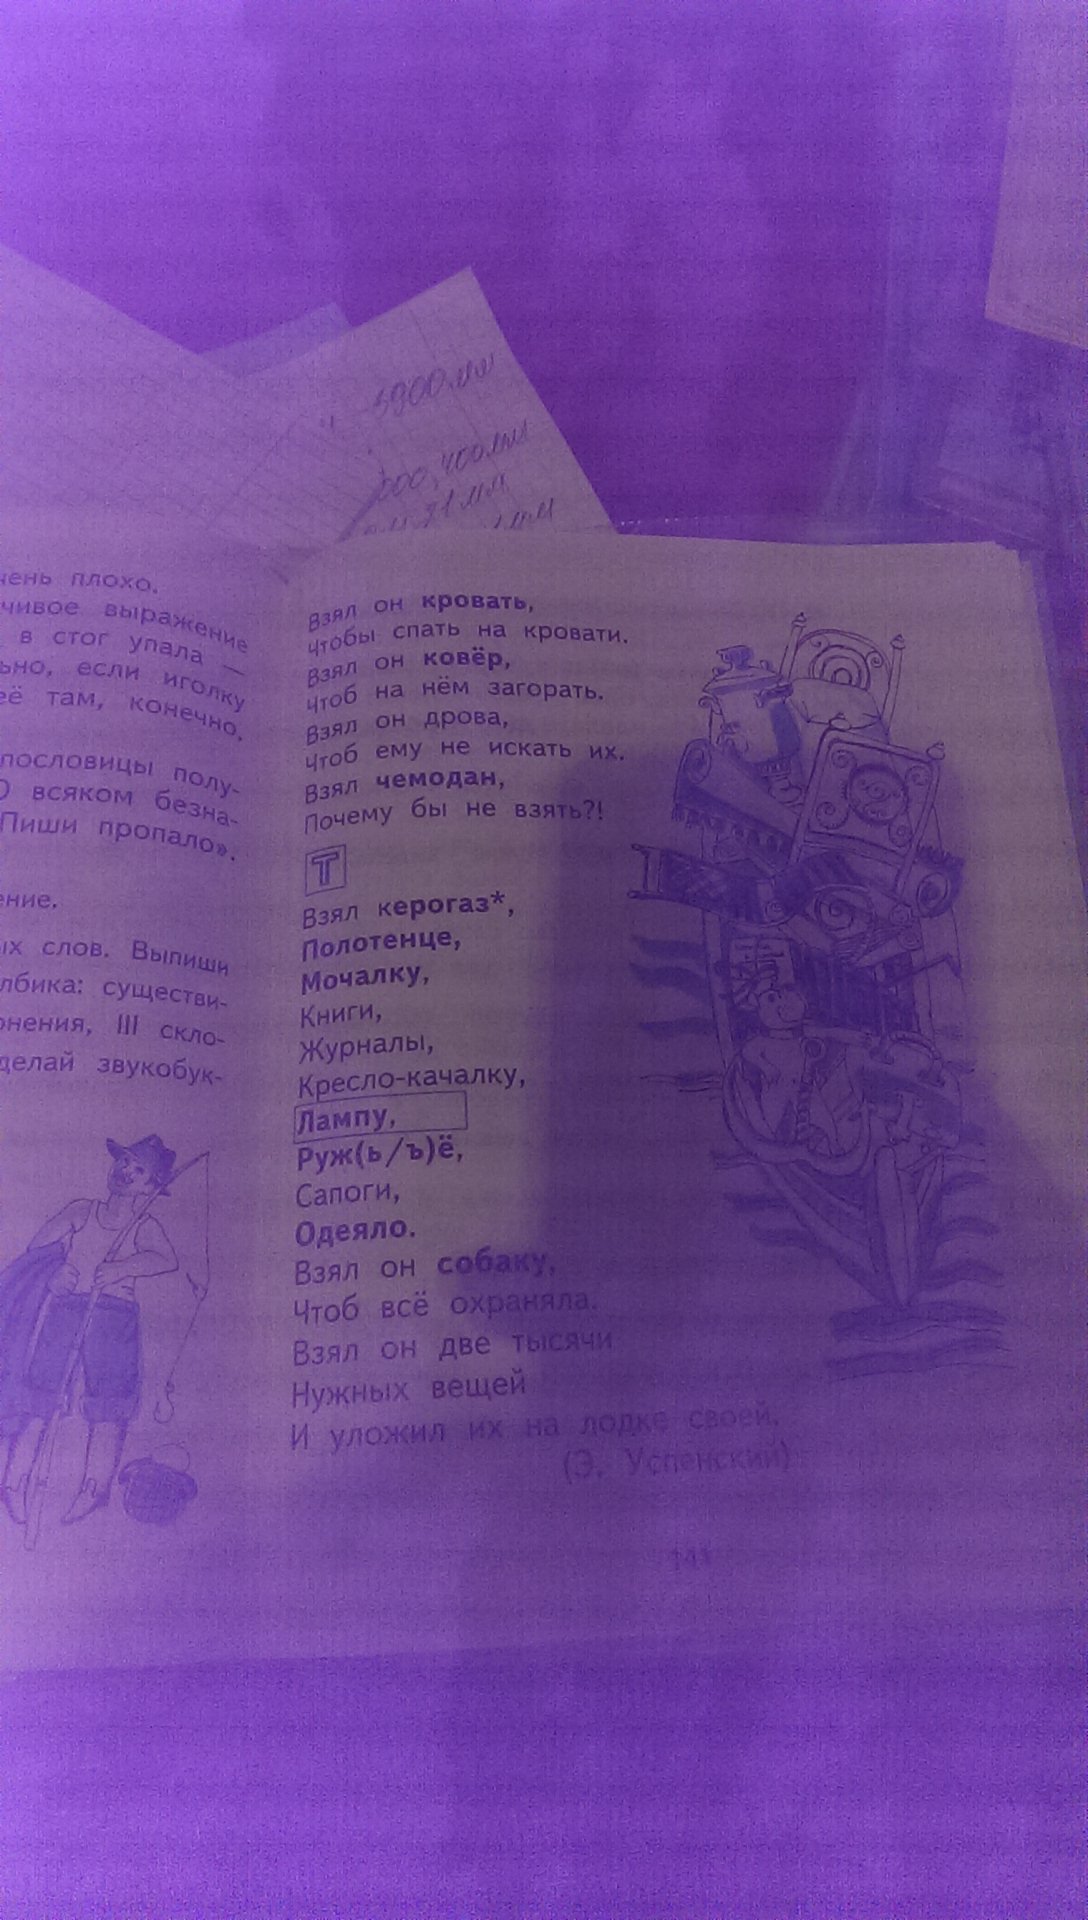 5900 мм
400 мм
чень плохо.
чивое выражение
в стог упала —
ьно, если иголку
её там, конечно.
пословицы полу-
О всяком безна-
Пиши пропало».
ение.
ых слов. Выпиши
лбика: существи-
онения, III скло-
делай звукобук-
Взял он кровать,
Чтобы спать на кровати.
Взял он ковёр,
Чтоб на нём загорать.
Взял он дрова,
Чтоб ему не искать их.
Взял чемодан,
Почему бы не взять?!
Т
Взял керогаз*,
Полотенце,
Мочалку,
Книги,
Журналы,
Кресло-качалку,
Лампу,
Руж(ь/ъ)ё,
Сапоги,
Одеяло.
Взял он собаку,
Чтоб всё охраняла.
Взял он две тысячи
Нужных вещей
И уложил их на лодке своей.
(Э. Успенский)
141